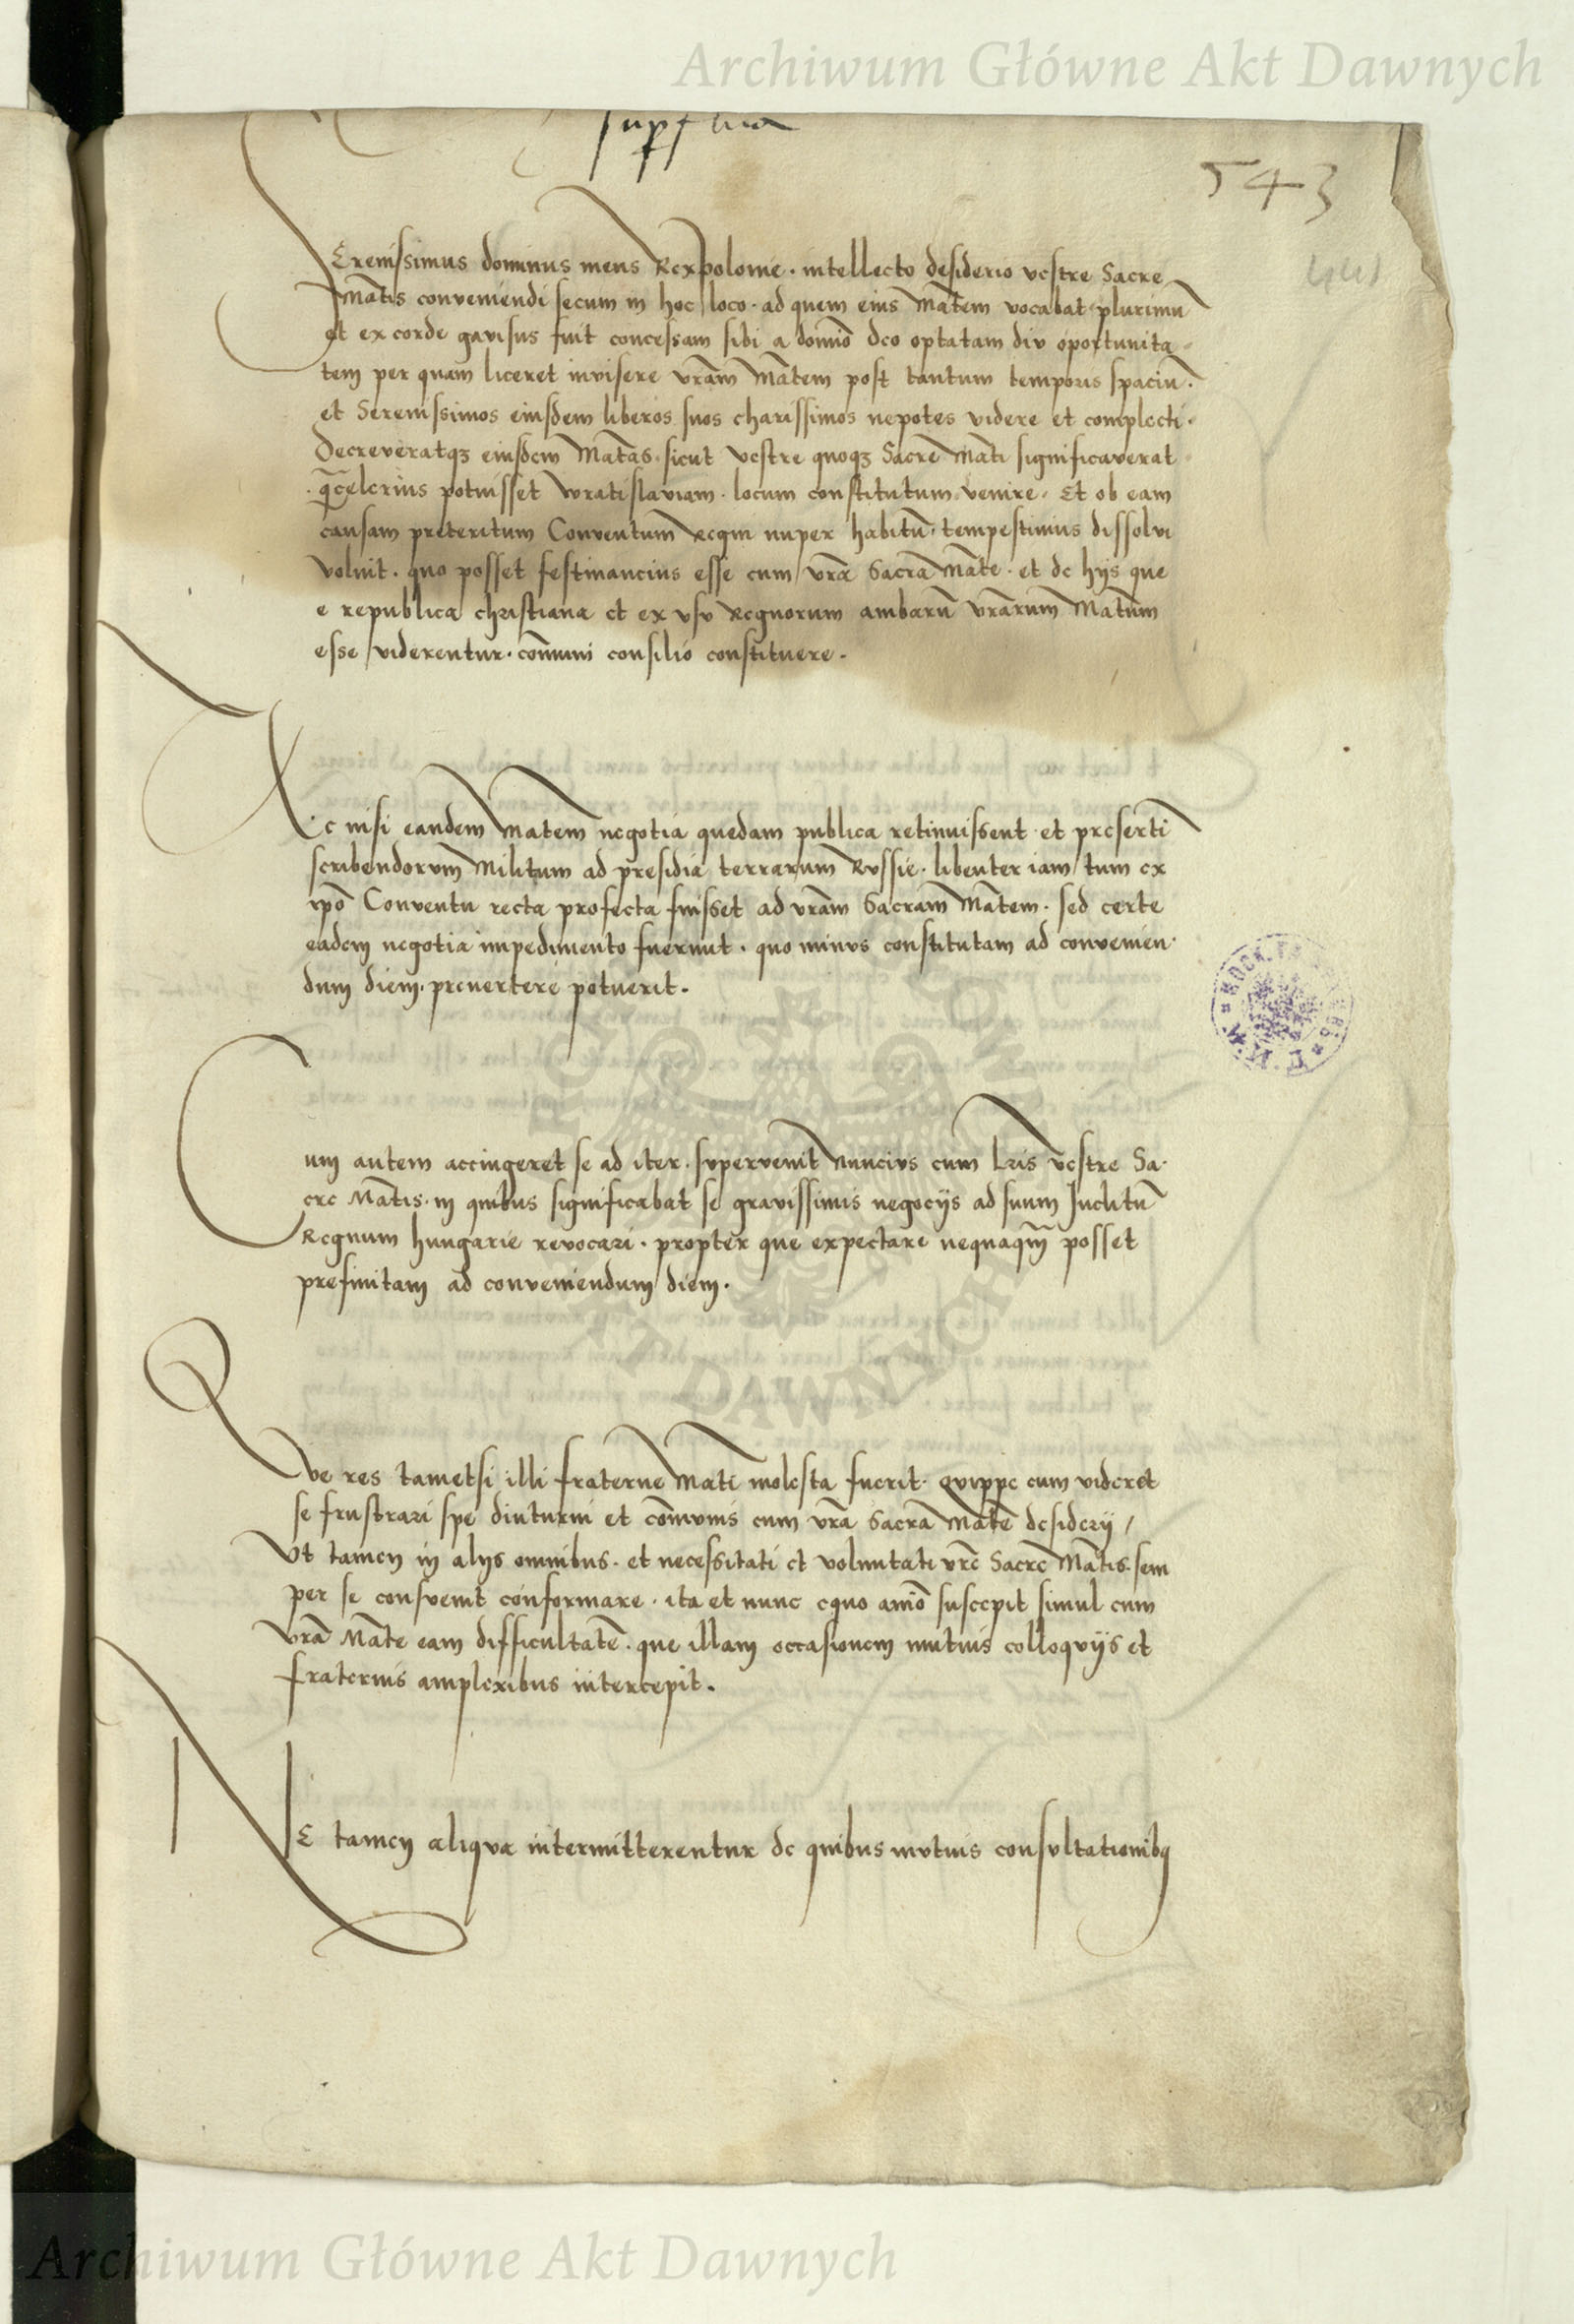 Archiwum Główne Akt Dawnych
543
Serenissimus dominus meus Rex polonie · intellecto desiderio vestre Sacre
Mātis conveniendi secum in hoc loco · ad quem eius Mātem vocabat plurimū
et ex corde gavisus fuit concessam sibi a domīo deo optatam div oportunita
tem per quam liceret invisere vrām Mātem post tantum temporis spaciū ·
et Serenissimos eiusdem liberos suos charissimos nepotes videre et complecti ·
Decreveratqȝ eiusdem Mātas · sicut vestre quoqȝ Sacre Māti significaverat
q̄celerius potuisset wratislaviam · locum constitutum venire · Et ob eam
causam preteritum Conventum Regni nuper habitū · tempestivius dissolvi
voluit · quo posset festinancius esse cum vrā Sacra Māte · et de hijs que
e republica christiana et ex vsv Regnorum ambarū vrārum Mātum
esse viderentur · com̄uni consilio constituere ·
Ac nisi eandem Mātem negotia quedam publica retinuissent · et presertī
scribendorum Militum ad presidia terrarum Rvssie · libenter iam tum ex
ipō Conventu recta profecta fuisset ad vrām Sacram Mātem · sed certe
eadem negotia impedimento fuerunt · quo minvs constitutam ad convenien
dum diem · prevertere potuerit ·
Cum autem accingeret se ad iter · svpervenit Nuncivs cum Lrīs vestre Sa
cre Mātis · in quibus significabat se gravissimis negocijs ad suum Inclitū
Regnum hungarie revocari · propter que expectare nequaqm̄ posset
prefinitam ad conveniendum diem ·
Qve res tametsi illi fraterne Māti molesta fuerit · qvippe cum videret
se frustrari spe diuturni et com̄vnis cum vrā Sacra Māte desiderij /
Vt tamen in alijs omnibus · et necessitati et voluntati vrē Sacre Mātis · sem
per se consvevit conformare · ita et nunc equo amīo suscepit simul cum
vrā Māte eam difficultatē · que illam occasionem mutuis colloqvijs et
fraternis amplexibus intercepit ·
NE tamen aliqva intermitterentur de quibus mvtuis consvltationibq
Archiwum Główne Akt Dawnych